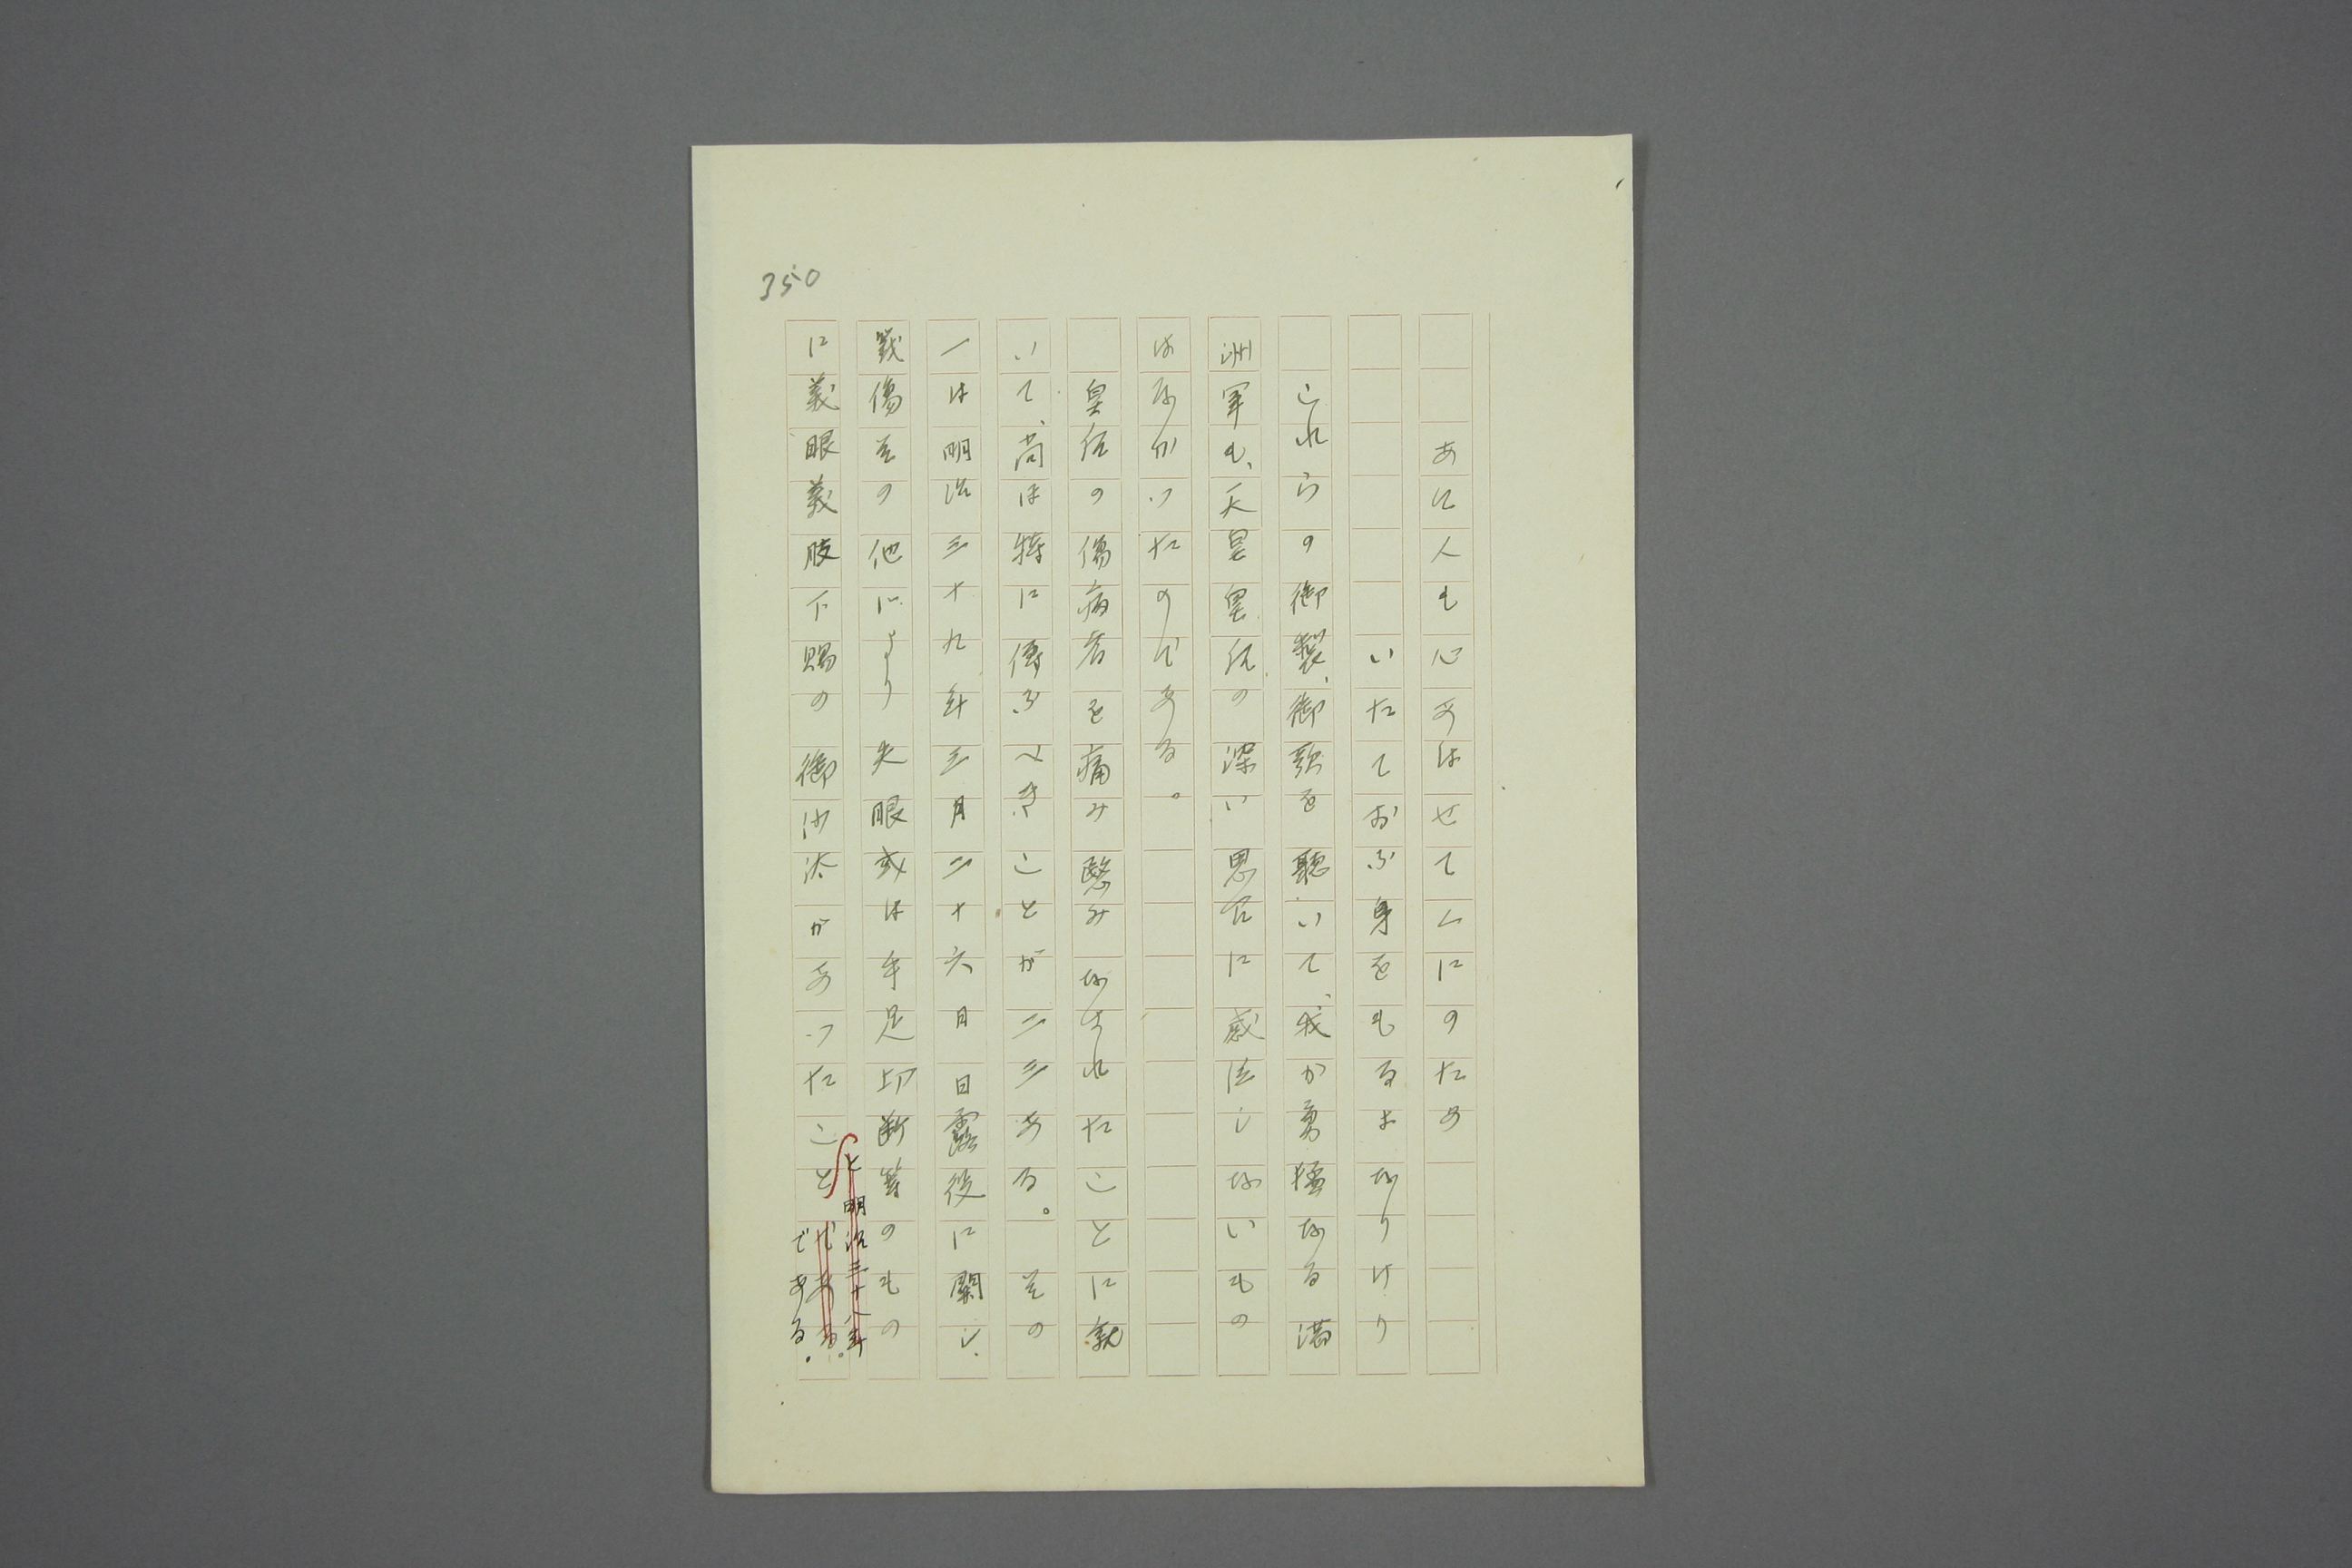 350
あに人も心あはせてくにのため
いたておふ身をもるよなりけり
これらの御製、御歌を聽いて、我か勇猛なる満
洲軍も、天皇皇后の深い思召に感泣しないもの
はなかったのである。
皇后の傷病者を痛み愍みなされたことに就
いて、尚ほ特に傳ふべきことが二三ある。その
一は明治三十九年三月二十六日日露役に關し、
戦傷その他により失眼或は手足切断等のもの
に義眼義肢下賜の御沙汰があったこと
と明治三十八年
である。
である。